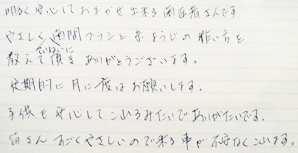 明るく安心しておまかせ出来る歯医者さんです
やさしく歯間ブラシと糸ようじの使い方を
ていねいに
教えて頂きありがとうございます。
定期的に月に一度はお願いします。
子供も安心しているみたいでありがたいです。
皆さんすごくやさしいので来る事が不安なく